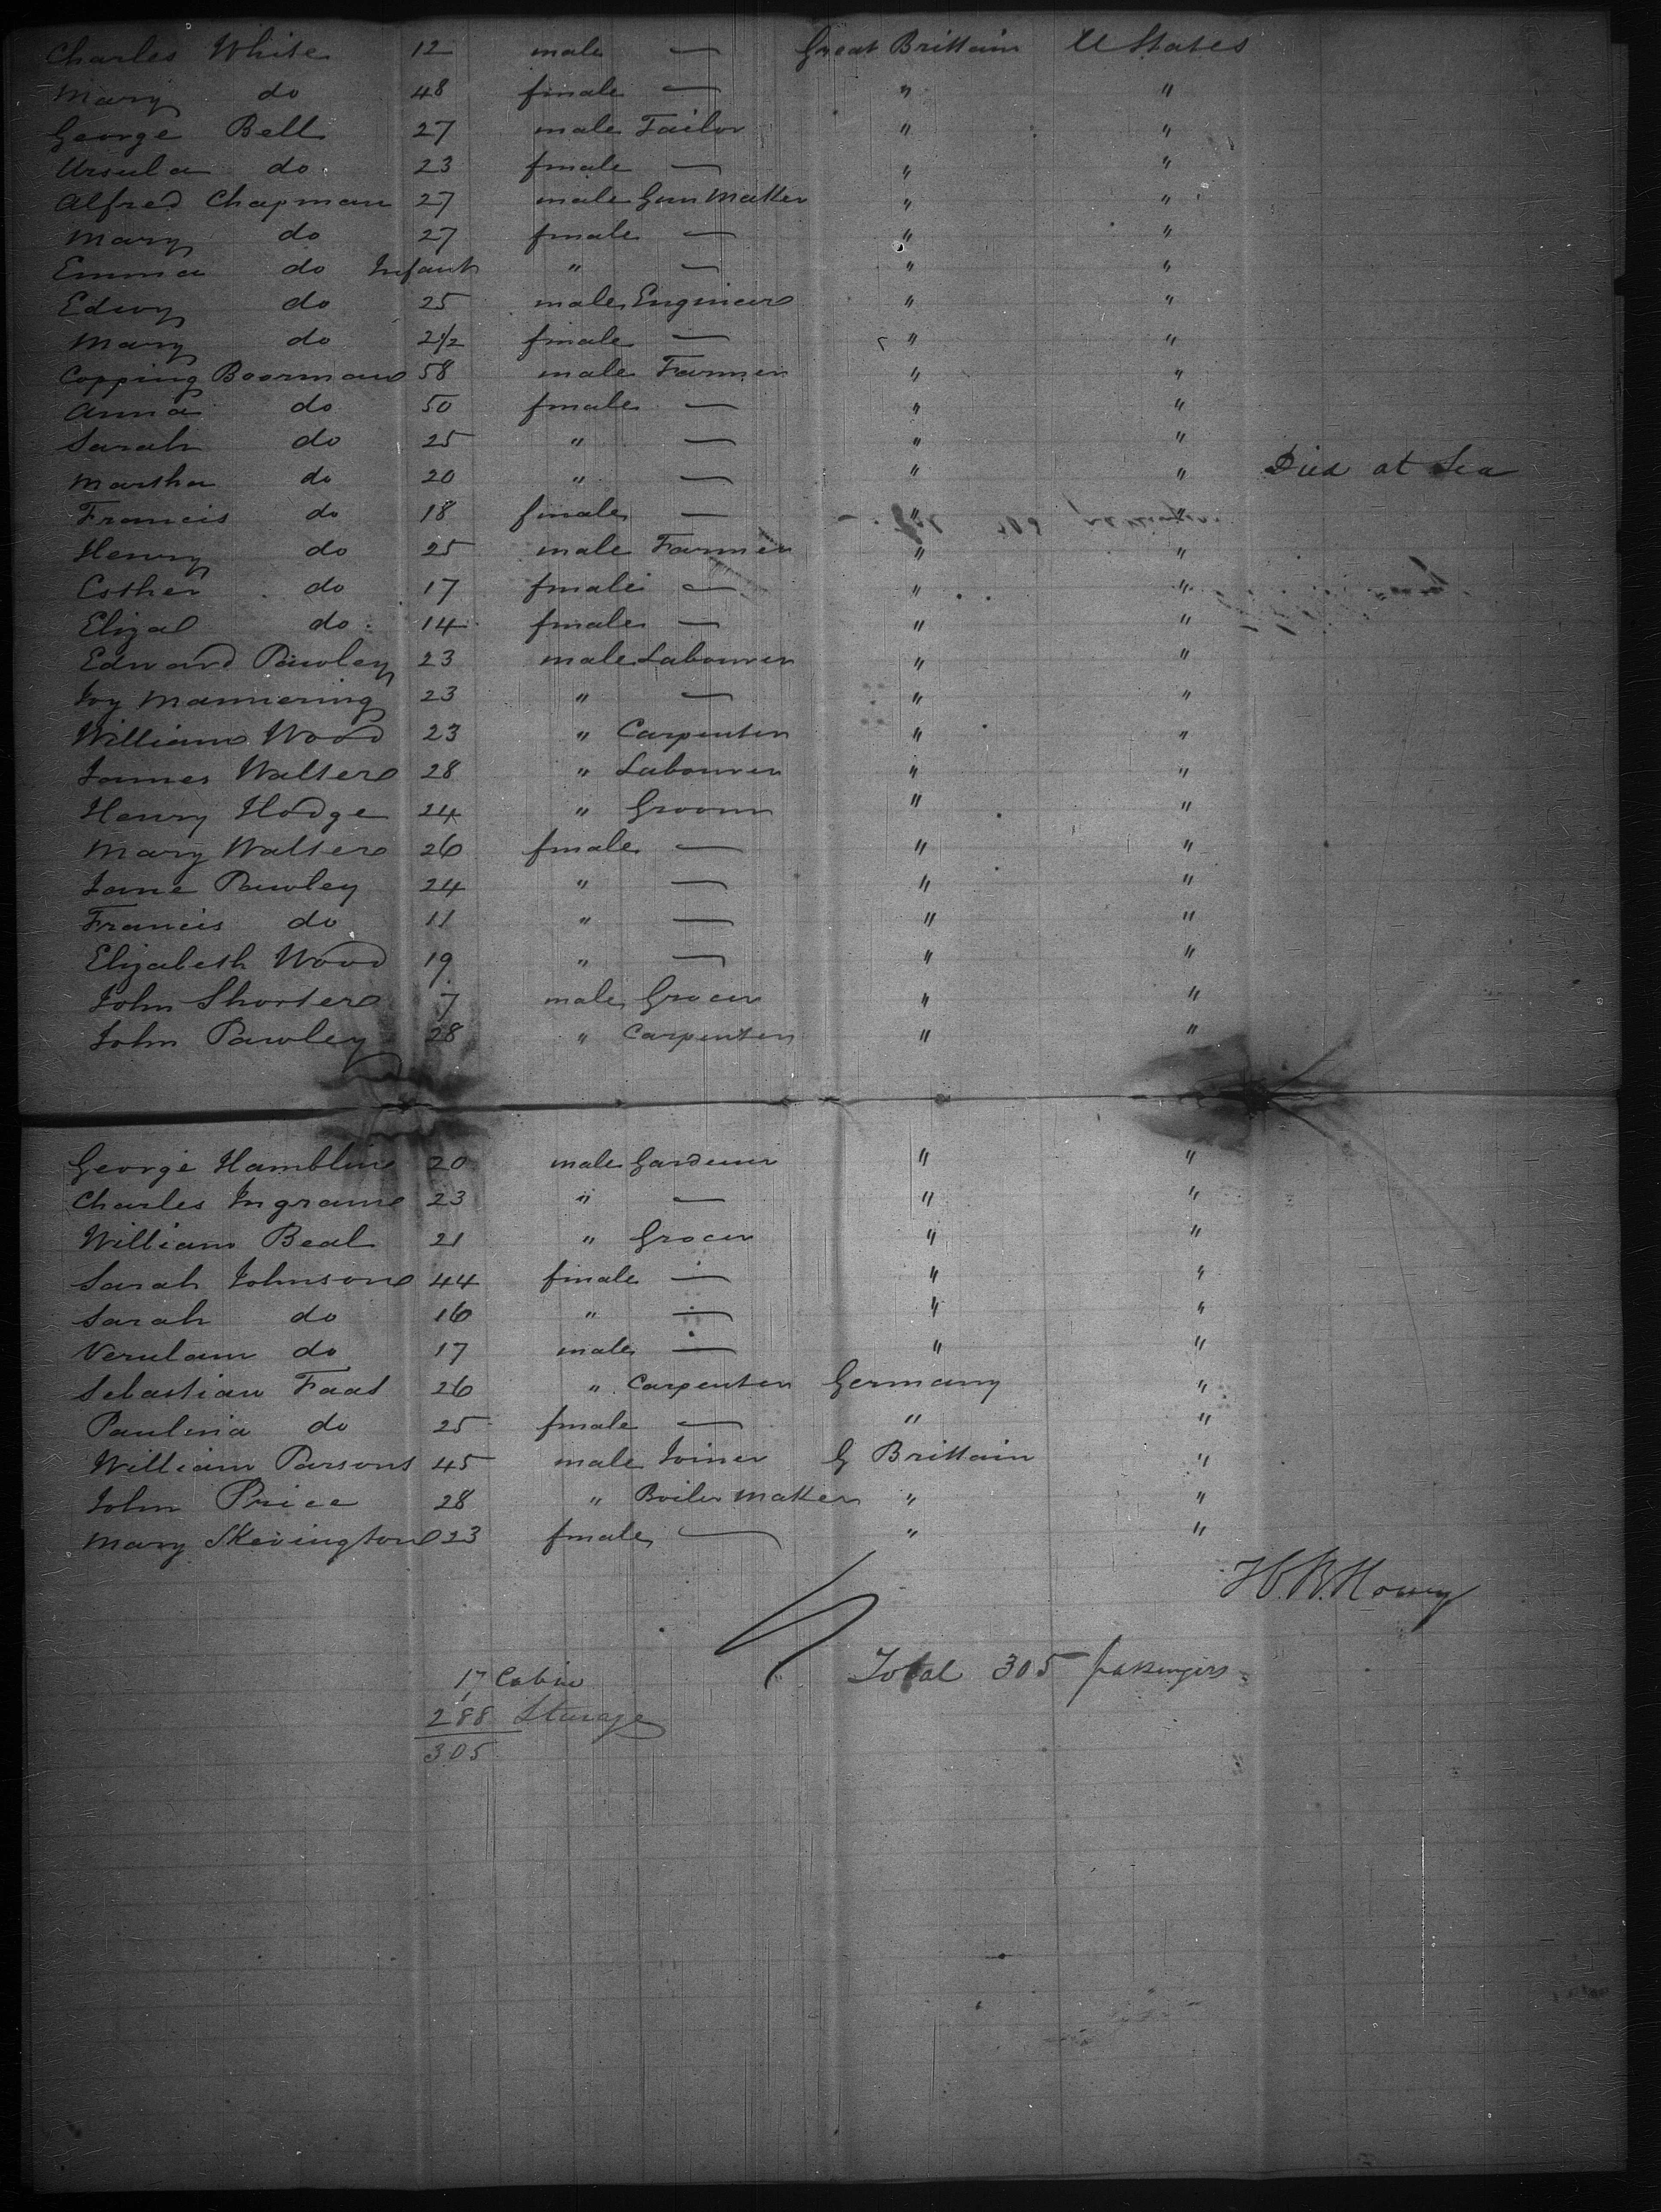 Charles White 12 male — Great Brittain U States
Mary do 48 fmale — " "
George Bell 27 male Tailor " "
Ursula do 23 fmale — " "
Alfred Chapman 27 male Gun Maker " "
Mary do 27 fmale — " "
Emma do Infant " — " "
Edwy do 25 male Engineer " "
Mary do 2½ fmale — " "
Copping Boorman 58 male Farmer " "
Anna do 50 fmale — " "
Sarah do 25 " — " "
Martha do 20 " — " " Died at Sea
Francis do 18 fmale — " "
Henry do 25 male Farmer " "
Esther do 17 fmale — " "
Eliza do 14 fmale — " "
Edward Pawley 23 male Labourer " "
Ivy Mannering 23 " — " "
William Wood 23 " Carpenter " "
James Walter 28 " Labourer " "
Henry Hodge 24 " Groom " "
Mary Walter 26 fmale — " "
Jane Pawley 24 " — " "
Francis do 11 " — " "
Elizabeth Wood 19 " — " "
John Shorter 7 male Grocer " "
John Pawley 28 " Carpenter " "
George Hamblin 20 male Gardener " "
Charles Ingram 23 " — " "
William Beal 21 " Grocer " "
Sarah Johnson 44 fmale — " "
Sarah do 16 " — " "
Verulam do 17 male — " "
Sebastian Faas 26 " Carpenter Germany "
Paulina do 25 fmale — " "
William Parsons 45 male Joiner G Brittain "
John Price 28 " Boiler Maker " "
Mary Skevington 23 fmale — " "
17 Cabin
Total 305 passengers
288 Sturage
305